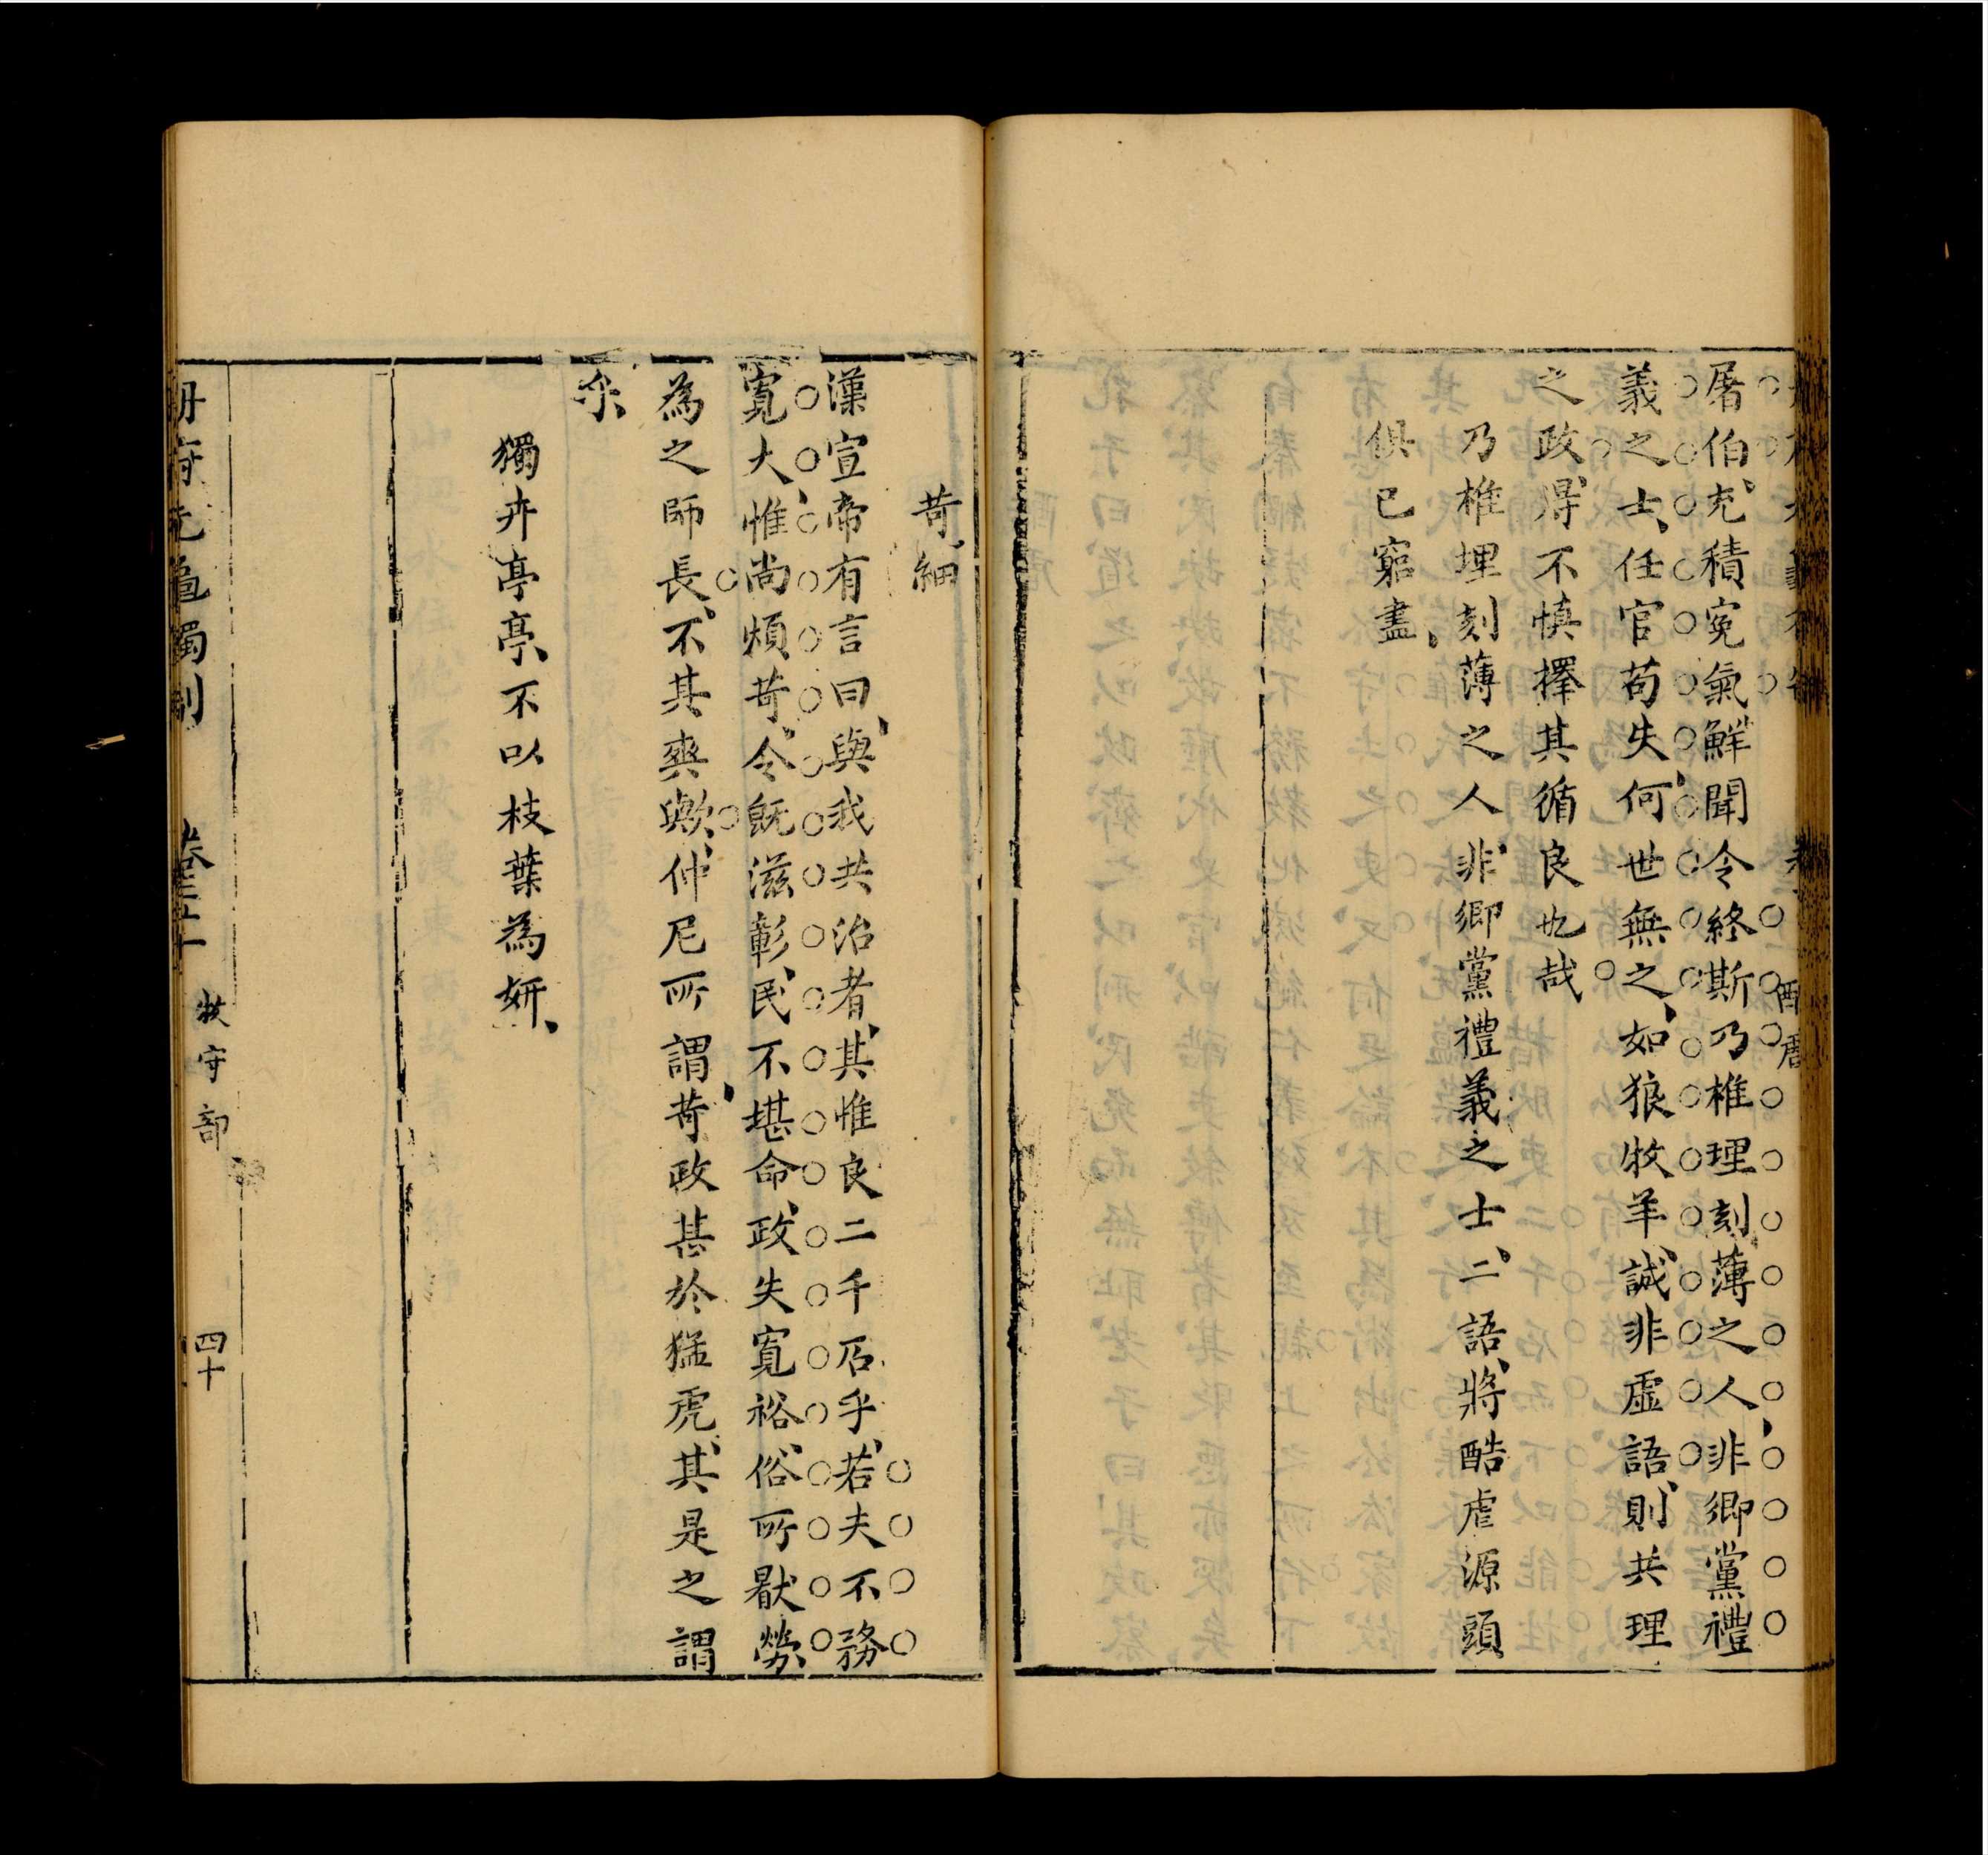 屠伯、充積寃氣鮮聞令終斯乃椎理刻薄之人、非鄉黨禮
義之士、任官苟失、何世無之、如狼牧羊、誠非虛語、則共理
之政、得不慎擇其循良也哉
乃椎埋刻薄之人、非鄉黨禮義之士、二語、將酷虐源頭
俱已窮盡、
酷虐
苛細
漢宣帝有言曰、與我共治者、其惟良二千石乎、若夫不務
寬大、惟尚煩苛、令旣滋彰、民不堪命、政失寬裕、俗所厭勞、
為之師長、不其爽歟、仲尼所謂、苛政甚於猛虎、其是之謂
乎、
獨卉亭亭、不以枝葉為妍、
冊府元龜獨制 卷三十一 牧守部 四十